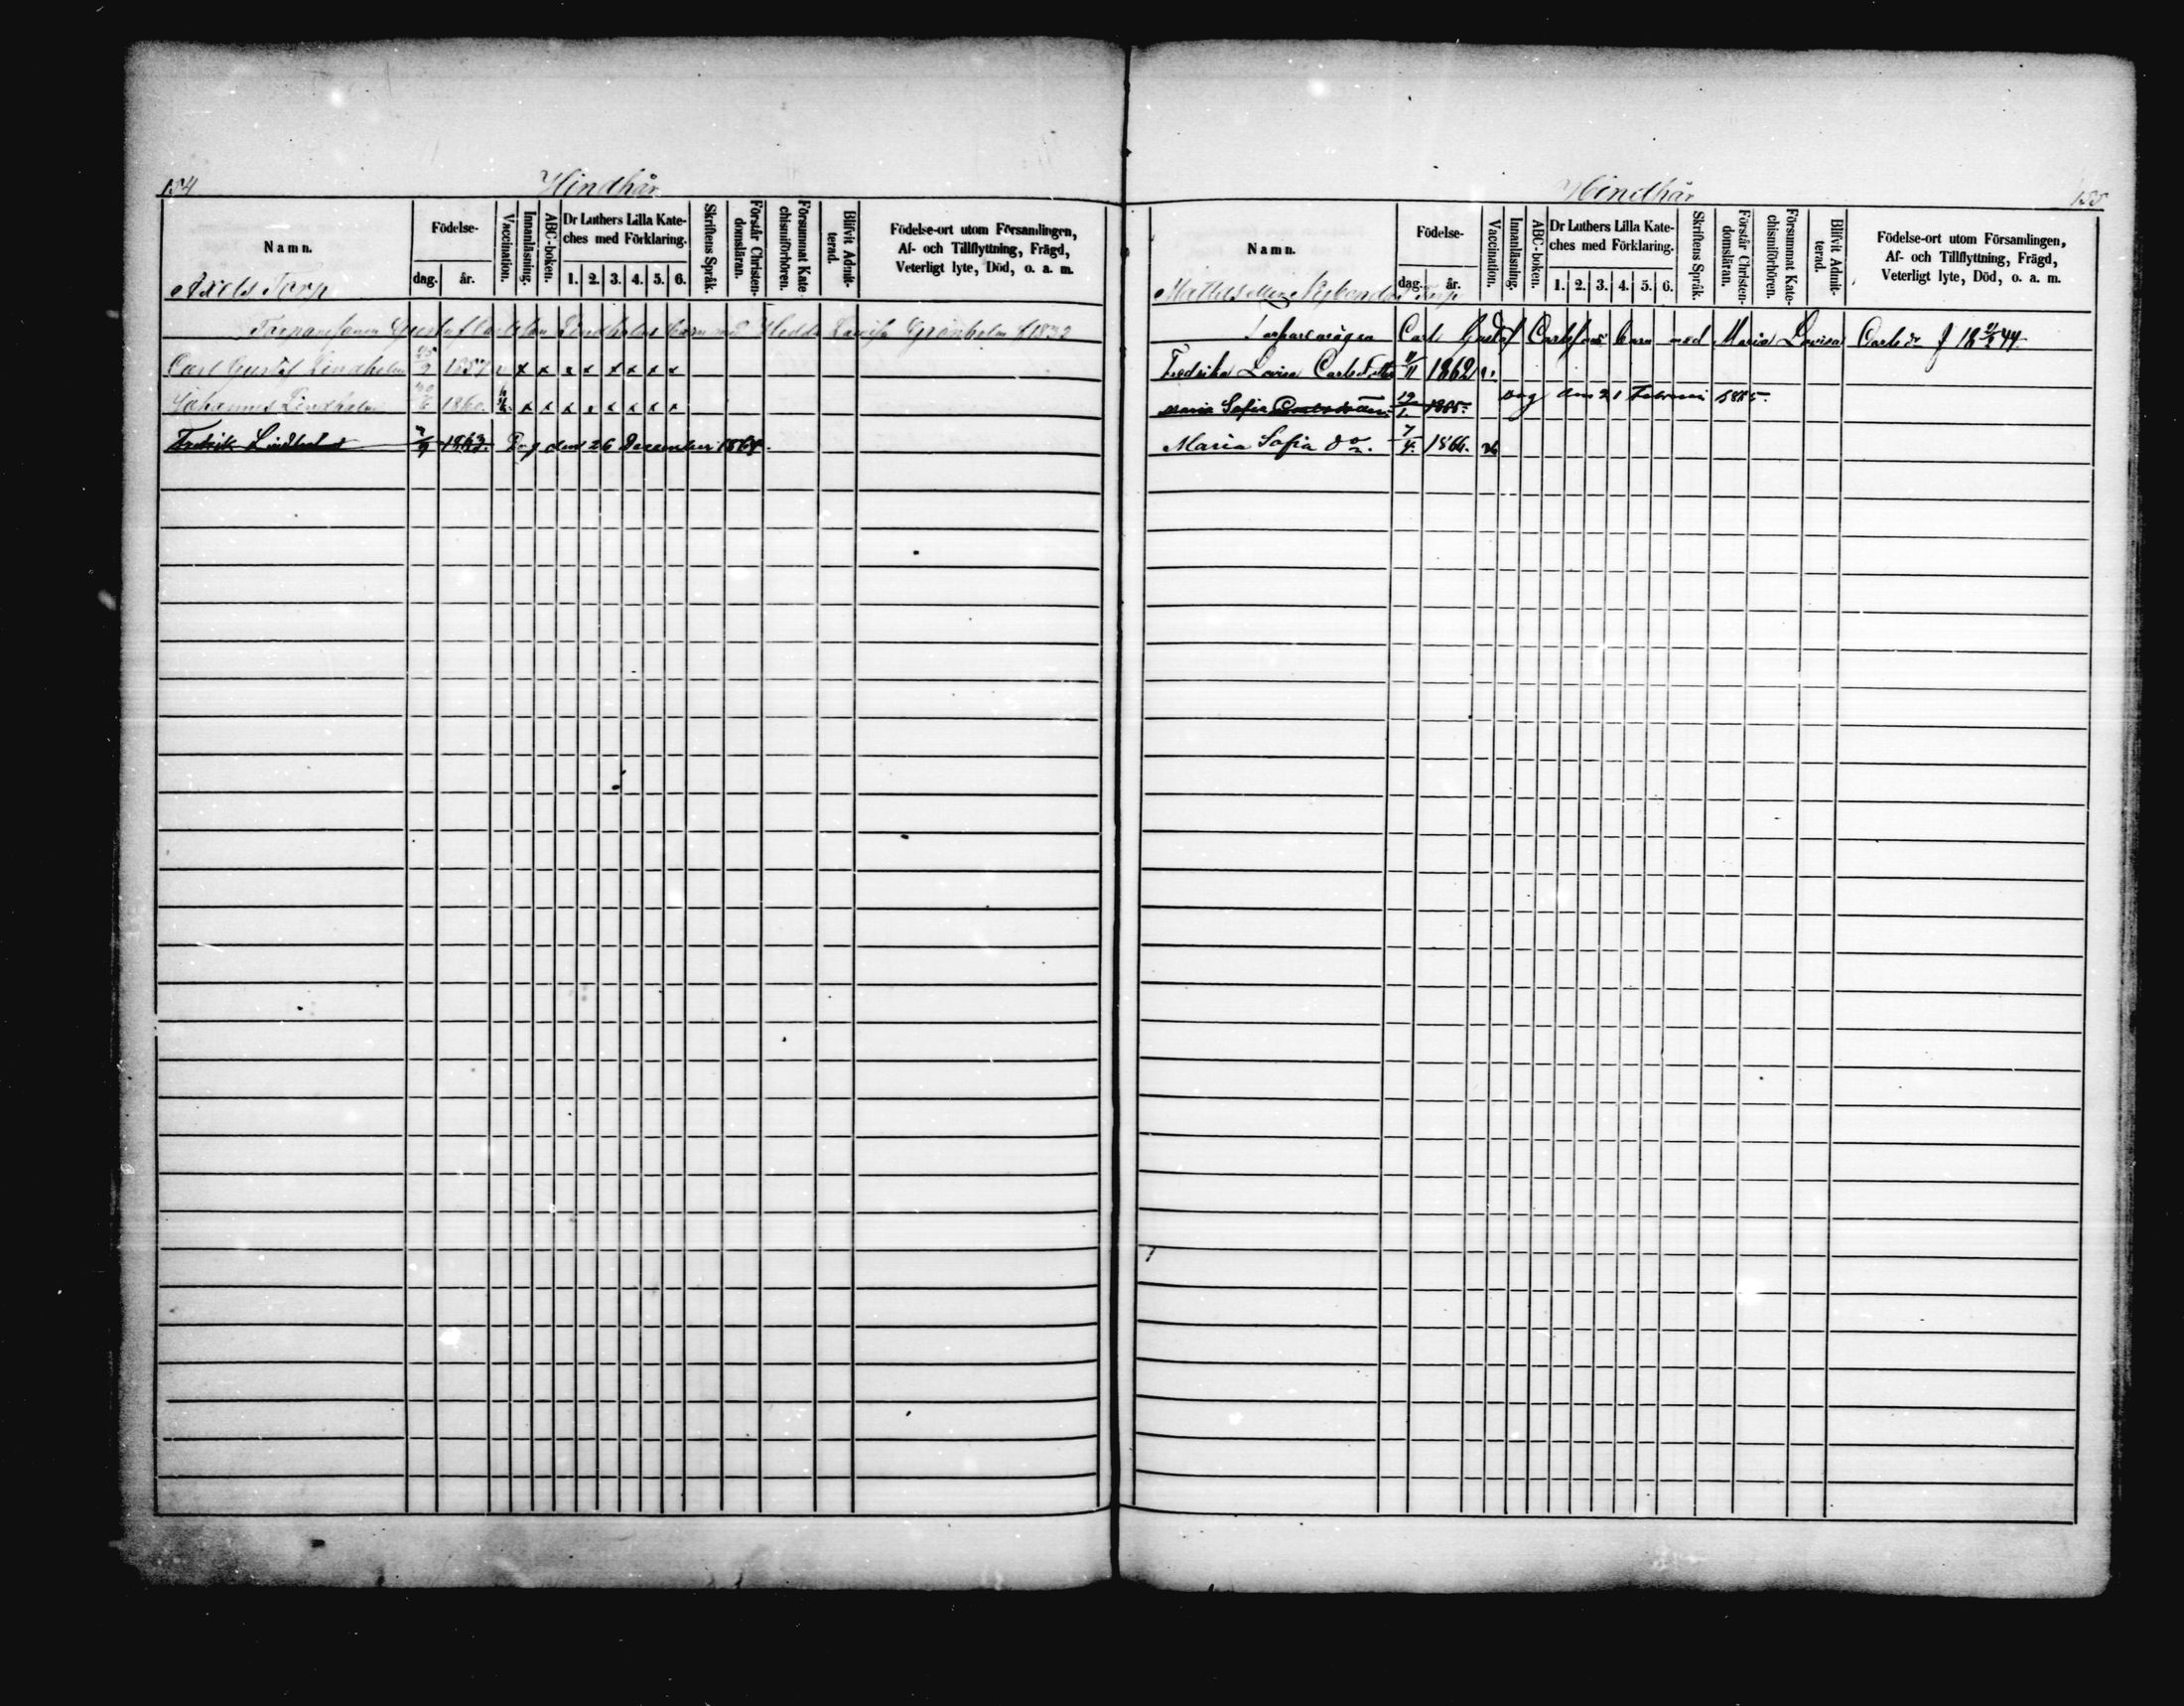 134
Hindhår
Namn.
Födelse-
dag. år.
Vaccination.
Innanläsning.
ABC-boken.
Dr Luthers Lilla Kate-
ches med Förklaring.
1. 2. 3. 4. 5. 6.
Skriftens Språk.
Förstår Christen-
domsläran.
Försummat Kate
chismiförhören.
Blifvit Admit-
terad.
Födelse-ort utom Församlingen,
Af- och Tillflyttning, Frägd,
Veterligt lyte, Död, o. a. m.
Axels Torp
Gustaf Carlsson Lindholms barn med Hedda Lovisa Grönholm f 1832
Carl Gustaf Lindholm 1857 v x x x x x x x x
Johannes Lindholm 1860. x x x x x x x x
Fredrik Lindholm 1863. Dog den 26 December 1868.
Hindhår
135
Namn.
Födelse-
dag. år.
Vaccination.
Innanläsning.
ABC-boken.
Dr Luthers Lilla Kate-
ches med Förklaring.
1. 2. 3. 4. 5. 6.
Skriftens Språk.
Förstår Christen-
domsläran.
Försummat Kate-
chismiförhören.
Blifvit Admit-
terad.
Födelse-ort utom Församlingen,
Af- och Tillflyttning, Frägd,
Veterligt lyte, Död, o. a. m.
Torp
Carl Gustaf Carlssons barn med Maria Lovisa Carlsdr f 18 44.
Fredrika Lovisa Carlsdotter 11/11 1862 v.
Maria Sofia Carlsdotter 19/1 1865. Dog den 21 Februari 1865.
Maria Sofia do 7/4. 1866. v